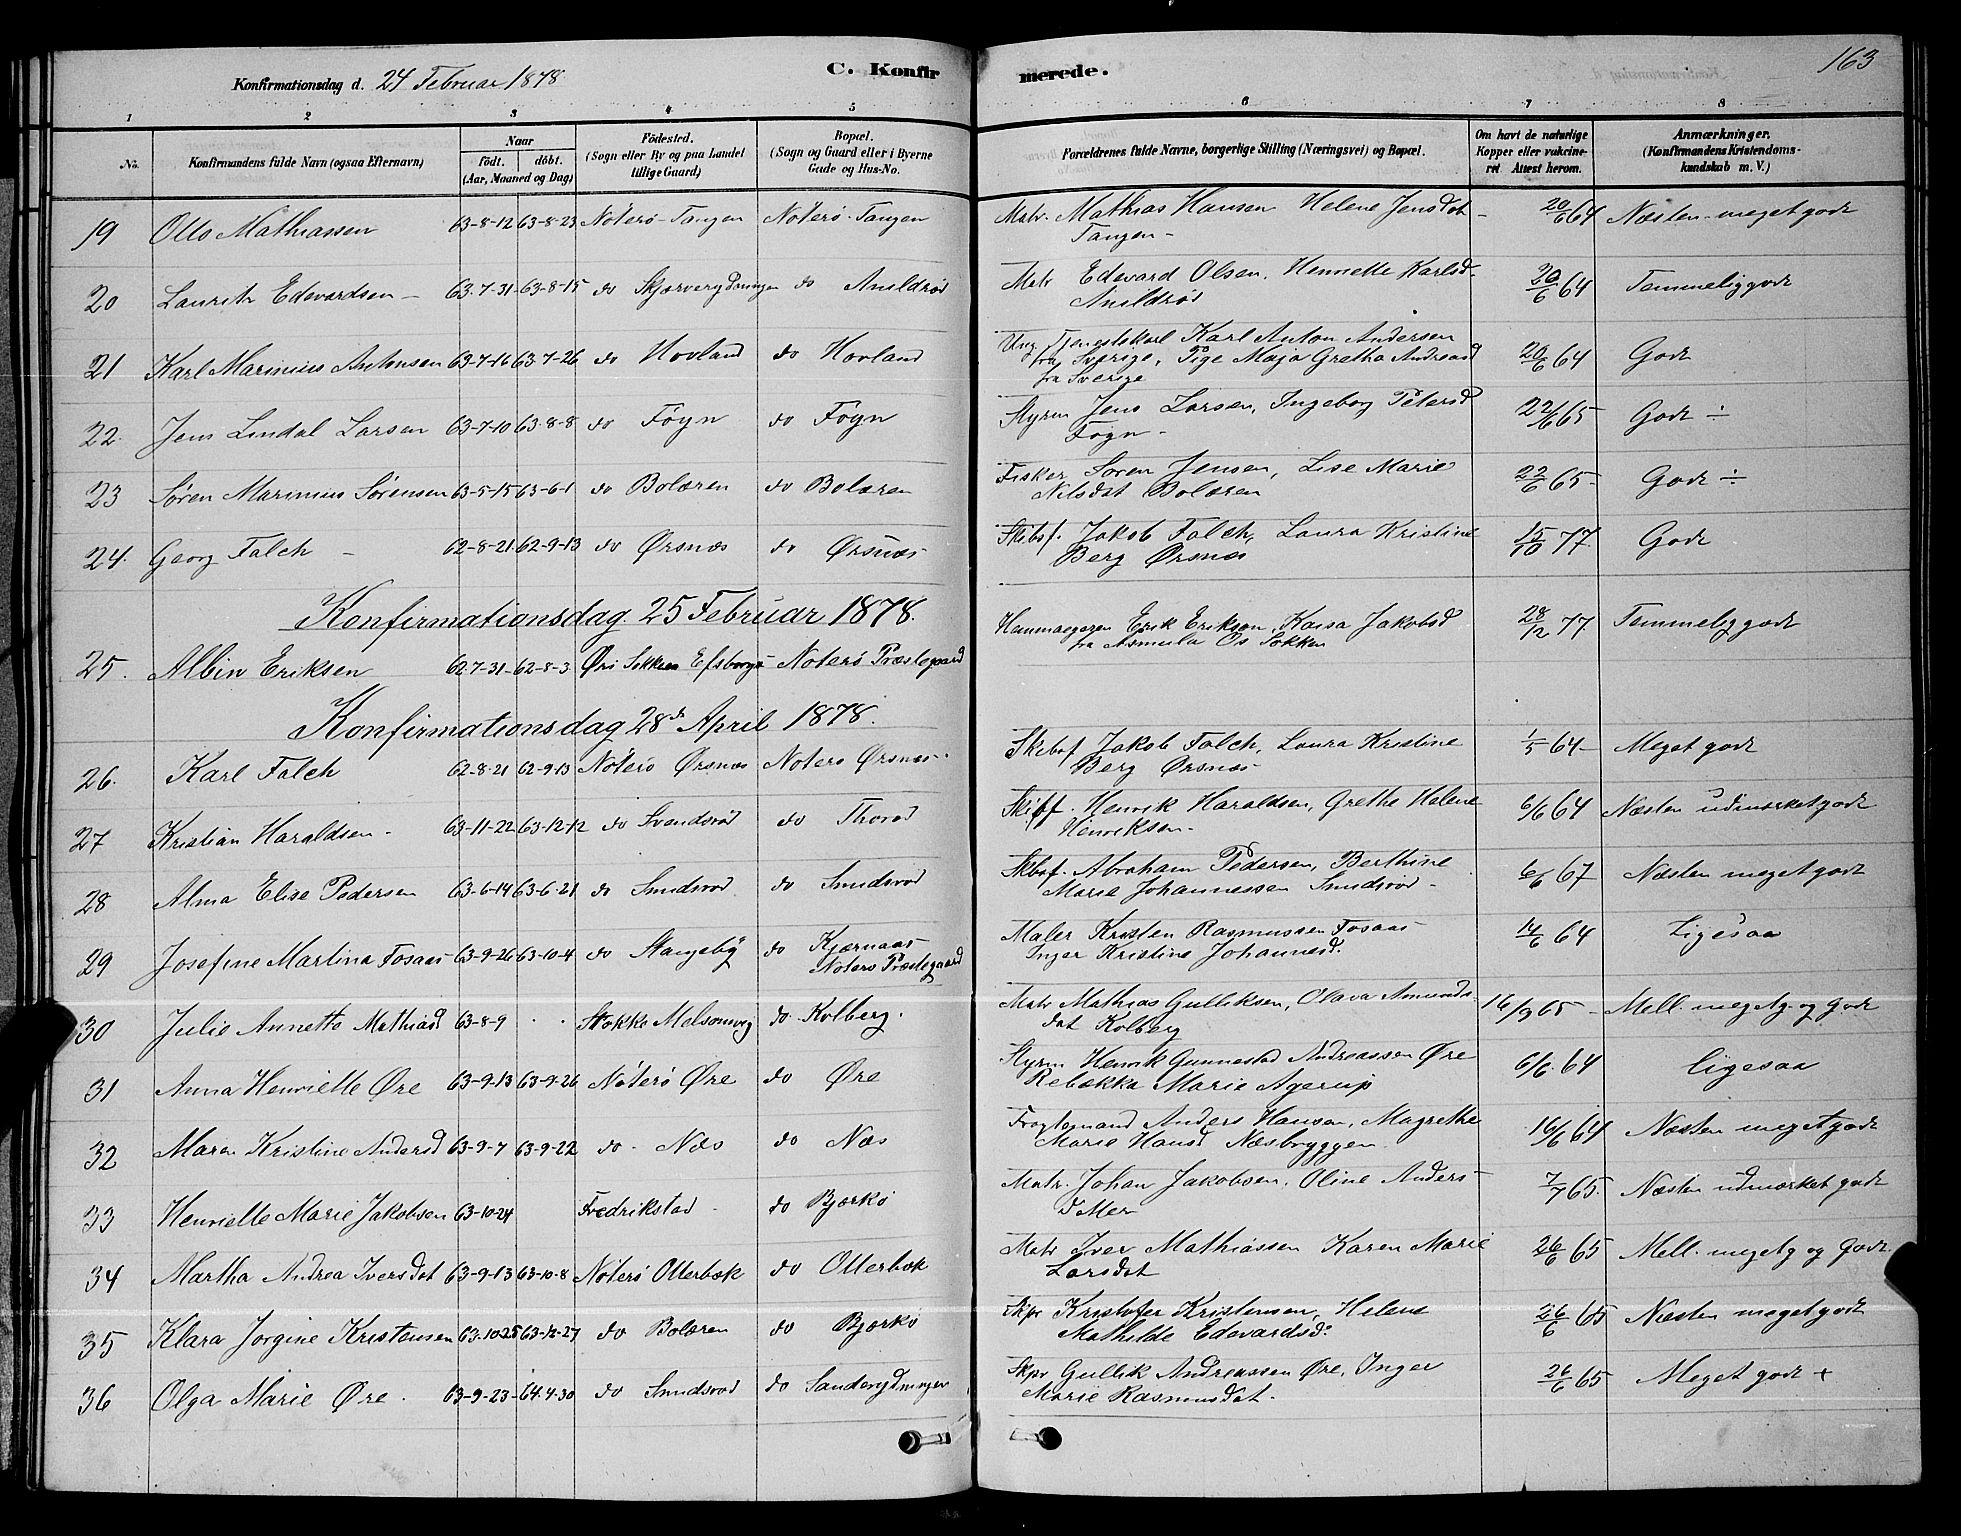 163
Konfirmationsdag d. 24 Februar 1878
C. Konfirmerede.
1 2 3 4 5 6 7 8
No.
Konfirmandens fulde Navn (ogsaa Efternavn)
Naar
födt. döbt.
(Aar, Maaned og Dag)
Födested.
(Sogn eller By og paa Landet
tillige Gaard)
Bopæl.
(Sogn og Gaard eller i Byerne
Gade og Hus-No.
Forældrenes fulde Navne, borgerlige Stilling (Næringsvei) og Bopæl.
Om havt de naturlige
Kopper eller vakcine-
ret Attest herom.
Anmærkninger.
(Konfirmandens Kristendoms-
kundskab m. V.)
19 Otto Mathiassen 63-8-12 63-8-23 Nøterø Tangen Nøterø Tangen Matr. Mathias Hansen Helene Jensdat - 20/6 64 Næsten meget godt
Tangen -
20 Laurits Edevardsen - 63-7-31 63-8-15 do Skjærverydningen do Anildrød Matr Edevard Olsen, Henriette Karlsd. 20/6 64 Temmelig godt
Anildrød
21 Karl Marinius Antonsen 63-7-16 63-7-26 do Hovland do Hovland Ung. Tjenestekarl Karl Anton Andersen
fra Sverige, Pige Maja Gretha Andreasd 20/6 64 Godt
fra Sverige
22. Jens Lindal Larsen 63-7-10 63-8-8 do Føyn do Føyn Styrm Jens Larsen, Ingeborg Petersd 22/6 65 Godt ÷
Føyn -
23 Søren Marinius Sørensen 63-5-15 63-6-1 do Bolæren do Bolæren Fisker Søren Jensen, Lise Marie 22/6 65- Godt ÷
Nilsdat Bolæren
24. Georg Falch - 62-8-21 62-9-13 do Ørsnæs do Ørsnæs Skibsf. Jakob Falch, Laura Kristine 15/10 77. Godt
Berg Ørsnæs
Konfirmationsdag 25 Februar 1878.
25. Albin Eriksen 62-7-31 62-8-3 Øri Sokken Efsborgs Nøterø Præstegaard Erik Erikson, Kaisa Jakobsd 28/12 77 Temmelig godt
fra Os Sokken
Konfirmationsdag 28de April 1878.
26. Karl Falch 62-8-21 62-9-13 Nøterø Ørsnæs Nøterø Ørsnæs Skibsf Jakob Falch, Laura Kristine 1/5 64- Meget godt
Berg Ørsnæs
27 Kristian Haraldsen - 63-11-22 63-12-12 do Svendsrød do Thorød Skibsf. Henrik Haraldsen, Grethe Helene 6/6 64 Næsten udmærket godt
Henriksen -
28 Alma Elise Pedersen 63-6-14 63-6-21 do Smidsrød do Smidsrød Skbsf. Abraham Pedersen, Berthine 6/6 67 Næsten meget godt
Marie Johannessen Smidsrød -
29 Josefine Martina Fosaas 63-9-26 63-10-4 do Stangeby do Kjærnaas Maler Kristen Rasmussen Fosaas 14/6 64 Ligesaa
Nøterø Præstegaard Inger Kristine Johannesd.
30 Julie Annette Mathiasd 63-8-9 . . Stokke Melsomvig do Kolberg. Matr Mathias Gulliksen, Olava Amunds- 16/9 65 - Mell. megetg. og godt
dat Kolberg
31 Anna Henriette Øre 63-9-13 63-9-26 Nøterø Øre do Øre Styrm Henrik Gunnestad Andreassen Øre 6/6 64 ligesaa
Rebekka Marie Agerup
32 Maren Kristine Andersd 63-9-7 63-9-22 do - Næs do Næs Fragtemand Anders Hansen, Magrethe 16/6 64 Næsten meget godt
Marie Hansd Næsbryggen
33 Henriette Marie Jakobsen 63-10-24 Fredrikstad do Bjærkø Matr. Johan Jakobsen, Oline Anders- 7/7 65. Næsten udmærket godt
34 Martha Andrea Iversdat 63-9-13 63-10-8 Nøterø Otterbæk do Otterbæk Matr Iver Mathiassen Karen Marie 26/6 65 Mell. megetg og godt.
Larsdat
35 Klara Jorgine Kristensen 63-10-25 63-12-27 do Bolæren do Bjærkø Skpr Kristofer Kristensen, Helene 26/6 65 Næsten meget godt
Mathilde Edevardsd.
36 Olga Marie Øre. 63-9-23- 64-4-30 do Smidsrød do Sanderydningen Skpr Gullik Andreassen Øre, Inger 26/6 65 Meget godt +
Marie Rasmusdat.